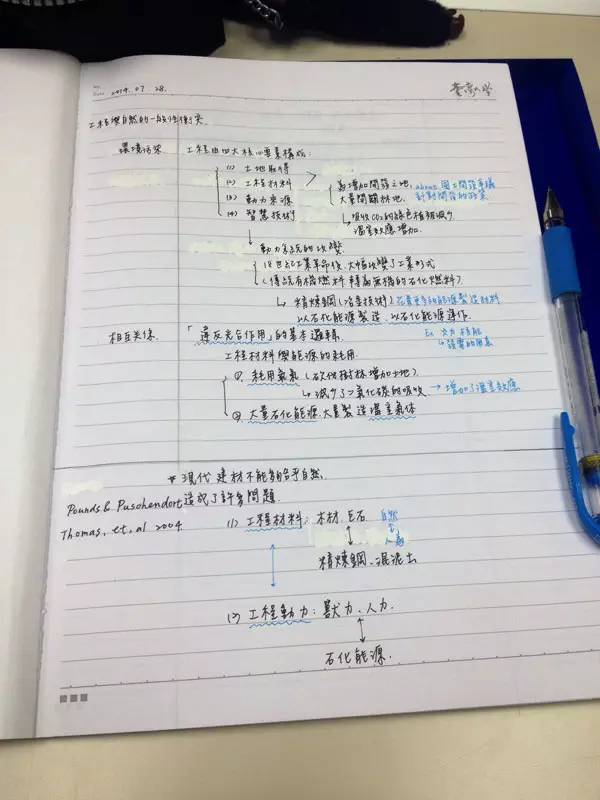 No.
Date 2014. 07 28.
工程與自然的一般性衝突
環境污染
工程由四大核心要素構成:
(1) 土地取得
(2) 工程材料
(3) 動力來源
(4) 智慧技術
為增加開發之地
大量開闢林地.
about 國土開發爭議
針對開發的政策
吸收CO2的綠色植物減少
溫室效應增加.
動力系統的改變
18世紀工業革命後、大幅改變了工業形式
(傳統有機燃料 轉為無機的石化燃料)
精煉鋼(冶金技術) 花費更多的能源製造材料
以石化能源製造、以石化能源運作.
相互关係
「違反光合作用」的基本邏輯.
Ex. 火力 核能
發電的用基
工程材料與能源的耗用
①. 耗用氧氣 (砍伐樹林增加土地)
減少了二氧化碳的吸收 → 增加了溫室效應
②. 大量石化能源、大量製造溫室氣体
* 現代建材不能夠給予自然,
Pounds & Puschendorf 造成了許多問題.
Thomas, et, al 2004
(1) 工程材料: 木材. 巨石 自然
人為
精煉鋼、混泥土
(2) 工程動力: 獸力、人力.
石化能源.